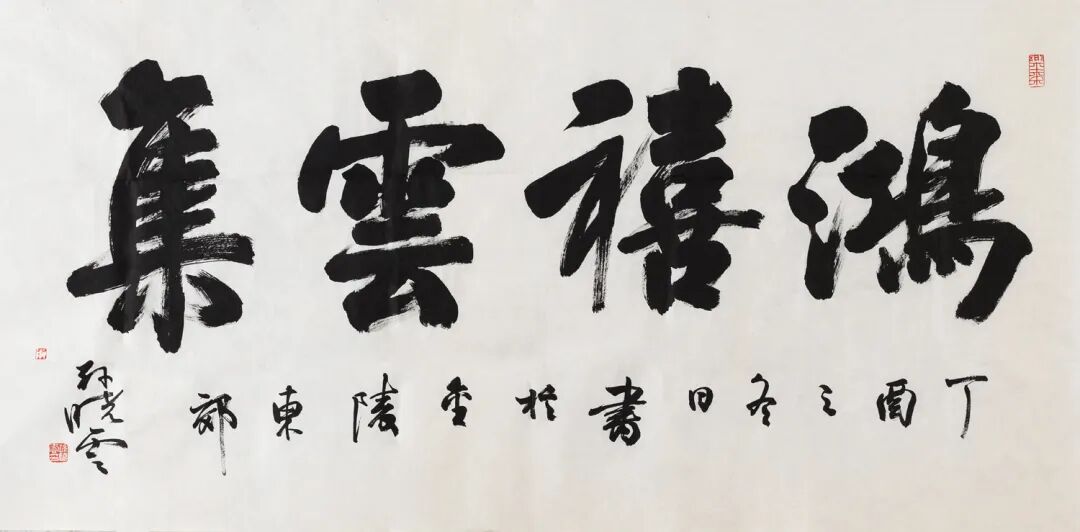 鴻禧雲集
丁酉之冬日書於金陵東郊
孫曉雲